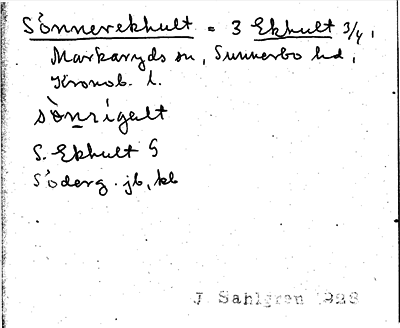 Sönnerekhult = 3 Ekhult 3/4,
Markaryds sn, Sunnerbo hd,
Kronob. l.
sönrigelt
S. Ekhult G
Söderg. jb, kb
J. Sahlgren 1928